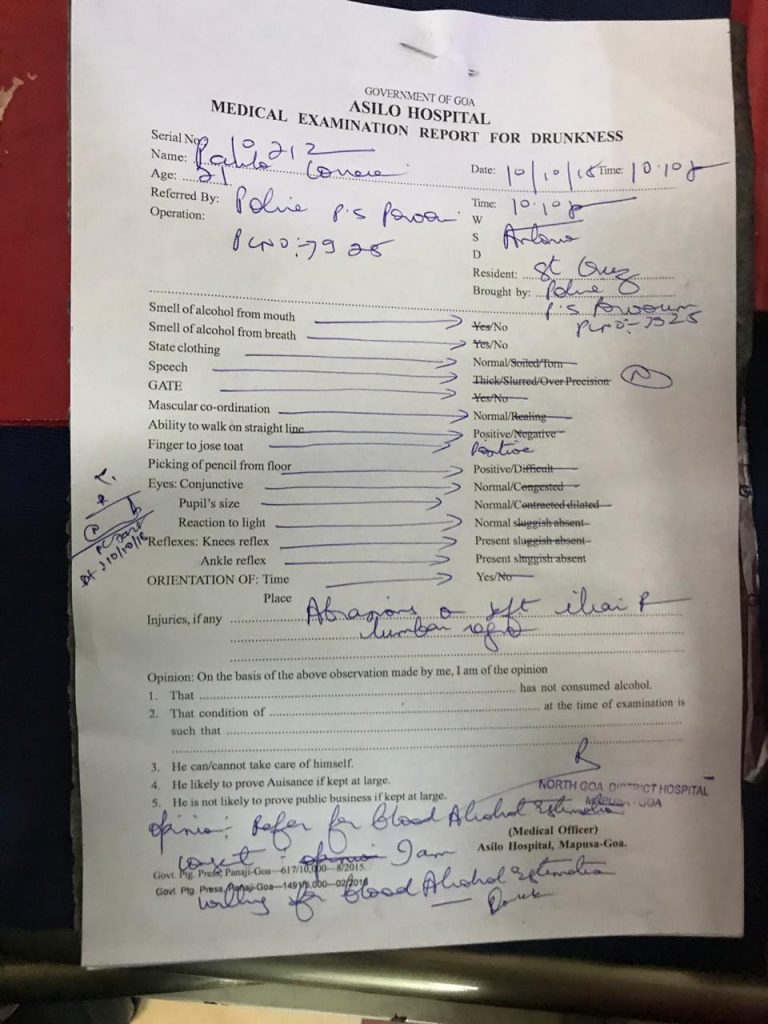 GOVERNMENT OF GOA
ASILO HOSPITAL
MEDICAL EXAMINATION REPORT FOR DRUNKNESS
Serial No. 10212
Name:
Date: 10/10/18 Time: 10.10p
Age: 21
Referred By: Police P.S
Time: 10.10p
Operation:
PCNO:-7925
W
S Antonio
D
Resident: St Cruz
Brought by: Police
P.S
PCNO:-7925
Smell of alcohol from mouth Yes/No
Smell of alcohol from breath Yes/No
State clothing Normal/Soiled/Torn
Speech Thick/Slurred/Over Precision N
GATE Yes/No
Mascular co-ordination Normal/Realing
Ability to walk on straight line Positive/Negative
Finger to jose toat Positive
Picking of pencil from floor Positive/Difficult
Eyes: Conjunctive Normal/Congested
Pupil's size Normal/Contracted dilated
Reaction to light Normal sluggish absent
Reflexes: Knees reflex Present sluggish absent
Ankle reflex Present sluggish absent
ORIENTATION OF: Time Yes/No
Place
Injuries, if any Abrasions left
lumbar
Opinion: On the basis of the above observation made by me, I am of the opinion
1. That has not consumed alcohol.
2. That condition of at the time of examination is
such that
3. He can/cannot take care of himself.
4. He likely to prove Auisance if kept at large.
5. He is not likely to prove public business if kept at large.
NORTH GOA DISTRICT HOSPITAL
MAPUSA - GOA
Opinio: Refer for blood Alcohol Estimation
(Medical Officer)
Asilo Hospital, Mapusa-Goa.
opinio I am
Govt. Ptg. Press, Panaji-Goa—617/10,000—8/2015.
Govt Ptg Press, Panaji-Goa—1491/5,000—02/2018
willing for blood Alcohol Estimation